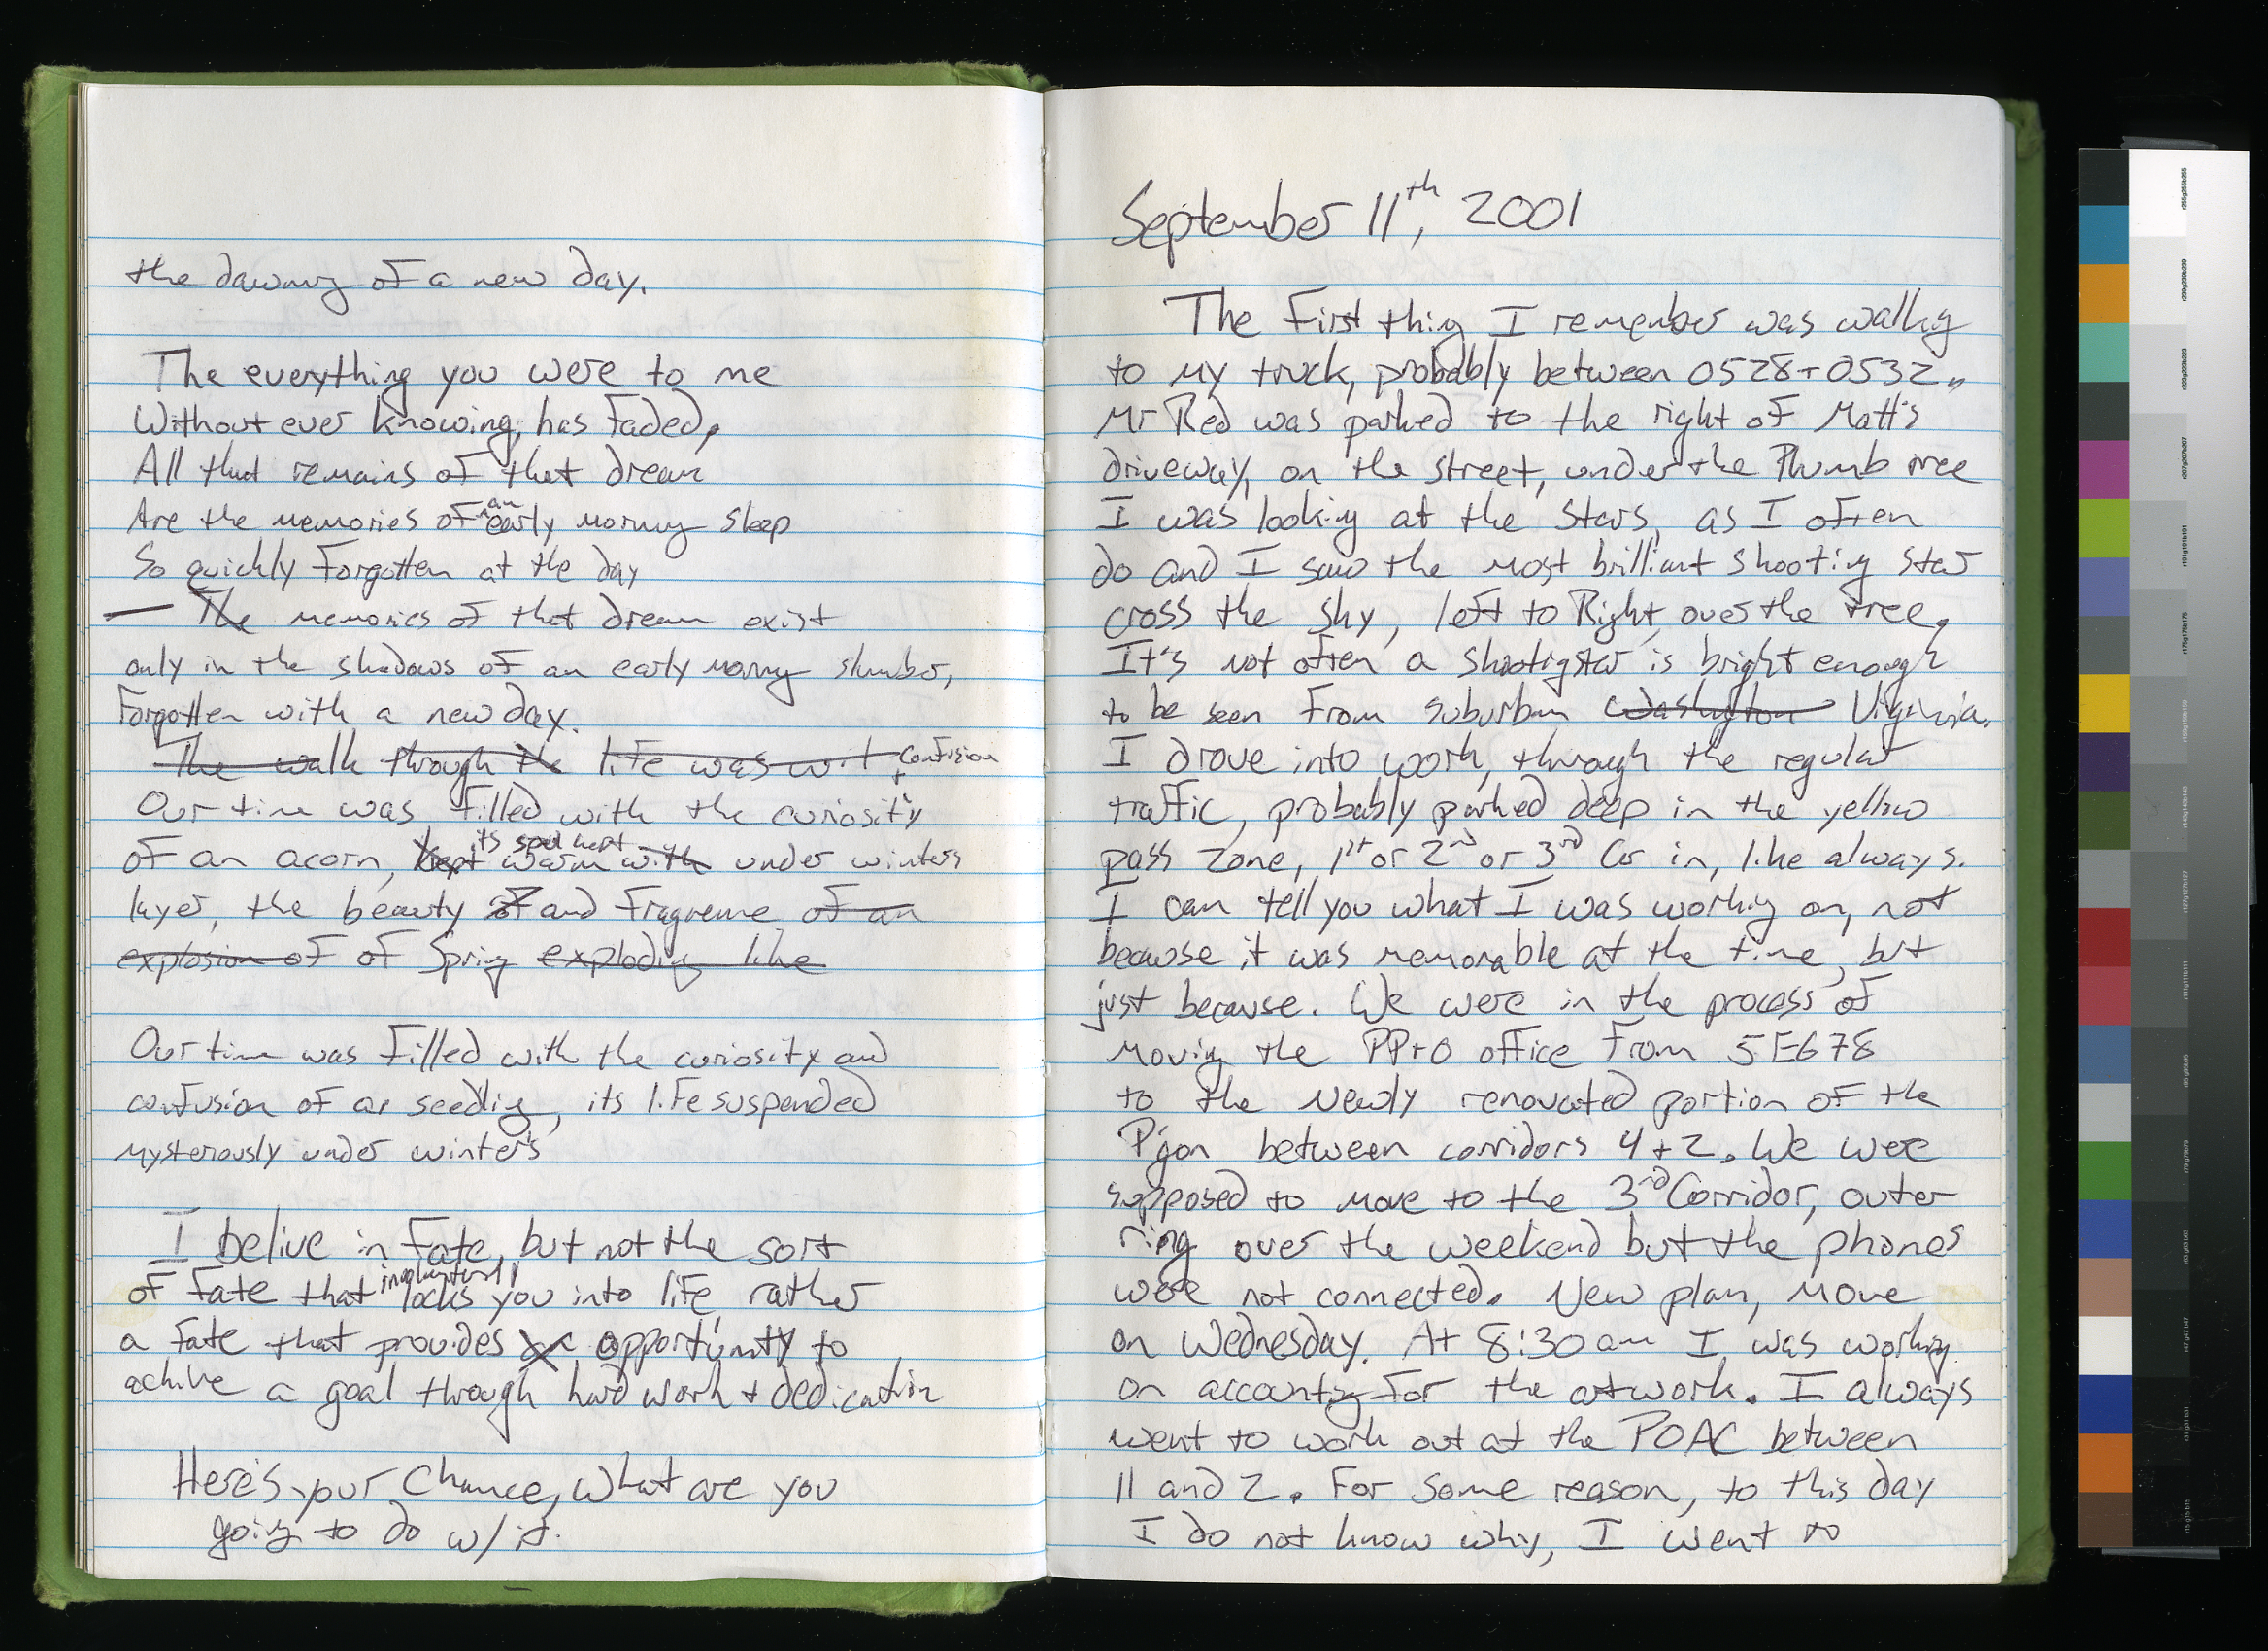 the dawning of a new day.
The everything you were to me
Without ever knowing, has faded,
All that remains of that dream
Are the memories of an early morning sleep
So quickly forgotten at the day
— The memories of that dream exist
only in the shadows of an early morning slumber,
Forgotten with a new day.
The walk through the life was wit confusion
Our time was filled with the + curiosity
of an acorn, kept its soul kept warm with under winters
layer, the beauty of and fragrence of an
explosion of of Spring exploding like
Our time was filled with the curiosity and
confusion of a seedling, its life suspended
mysteriously under winter's
I belive in Fate, but not the sort
of fate that locks you into life rather
a fate that provides opportunity to
achive a goal through hard work + dedication
Here's your Chance, what are you
going to do w/it.
September 11th, 2001
The First thing I remember was walking
to my truck, probably between 0528 + 0532,
Mr Red was parked to the right of Matt's
driveway, on the street, under the Plumb tree
I was looking at the stars, as I often
do and I saw the most brilliant shooting star
cross the sky, left to Right, over the tree.
It's not often a shootigstar is bright enough
to be seen from suburban Washington Virginia.
I drove into work, through the regular
traffic, probably parked deep in the yellow
pass zone, 1st or 2nd or 3rd Car in, like always.
I can tell you what I was working on, not
because it was memorable at the time, but
just because. We were in the process of
moving the PP+O office from 5E678
to the newly renovated portion of the
P'gon between corridors 4 + 2. We were
supposed to move to the 3rd Corridor, outer
ring over the weekend but the phones
were not connected. New plan, move
on Wednesday. At 8:30 am I was working
on accounting for the artwork. I always
went to work out at the POAC between
11 and 2. For some reason, to this day
I do not know why, I went to